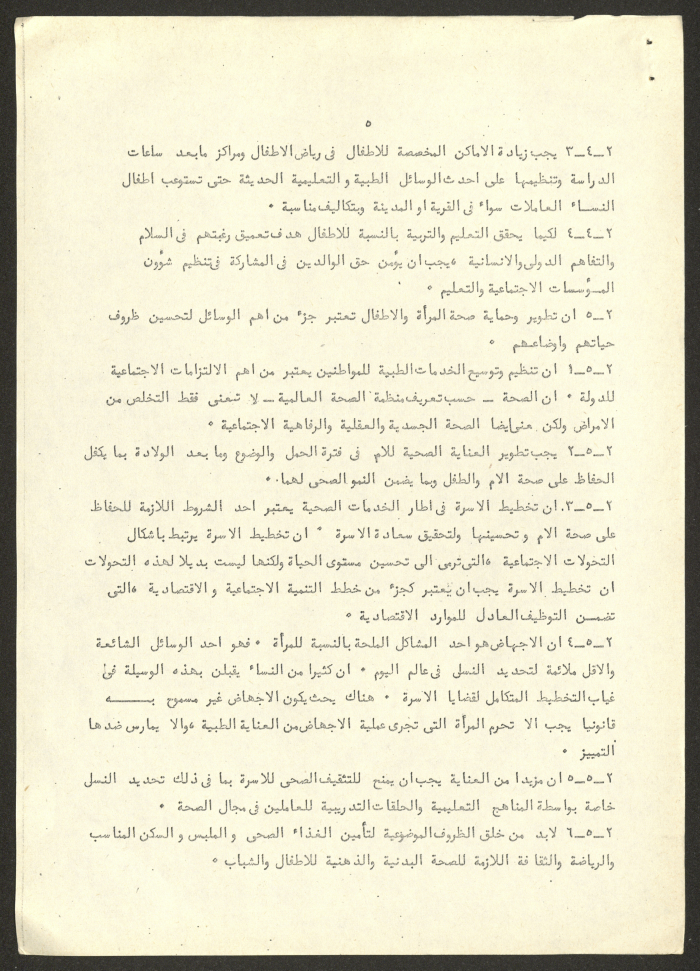 ٥
٢_٤_٣ يجب زيادة الاماكن المخصصة للاطفال في رياض الاطفال ومراكز مابعد ساعات
الدراسة وتنظيمها على احدث الوسائل الطبية و التعليمية الحديثة حتى تستوعب اطفال
النساء العاملات سواء في القرية او المدينة وبتكاليف مناسبة .
٢_٤_٤ لكيما يحقق التعليم والتربية بالنسبة للاطفال هدف تعميق رغبتهم في السلام
والتفاهم الدولي والانسانية ، يجب ان يؤمن حق الوالدين في المشاركة في تنظيم شؤون
المؤسسات الاجتماعية والتعليم .
٢_٥ ان تطوير وحماية صحة المرأة والاطفال تعتبر جزء من اهم الوسائل لتحسين ظروف
حياتهم واوضاعهم .
٢_٥_١ ان تنظيم وتوسيع الخدمات الطبية للمواطنين يعتبر من اهم الالتزامات الاجتماعية
للدولة . ان الصحة _ حسب تعريف منظمة الصحة العالمية _ لا تعنى فقط التخلص من
الامراض ولكن عنى ايضا الصحة الجسدية والعقلية والرفاهية الاجتماعية .
٢_٥_٢ يجب تطوير العناية الصحية للام في فترة الحمل والوضوع وما بعد الولادة بما يكفل
الحفاظ على صحة الام والطفل وبما يضمن النمو الصحى لهما .
٢_٥_٣. ان تخطيط الاسرة في اطار الخدمات الصحية يعتبر احد الشروط اللازمة للحفاظ
على صحة الام و تحسينها ولتحقيق سعادة الاسرة . ان تخطيط الاسرة يرتبط باشكال
التحولات الاجتماعية ، التى ترمى الى تحسين مستوى الحياة ولكنها ليست بديلا لهذه التحولات
ان تخطيط الاسرة يجب ان يعتبر كجزء من خطط التنمية الاجتماعية و الاقتصادية ، التى
تضمن التوظيف العادل للموارد الاقتصادية .
٢_٥_٤ ان الاجهاض هو احد المشاكل الملحة بالنسبة للمرأة . فهو احد الوسائل الشائعة
والاقل ملائمة لتحديد النسل في عالم اليوم . ان كثيرا من النساء يقبلن بهذه الوسيلة في
غياب التخطيط المتكامل لقضايا الاسرة . هناك يحث يكون الاجهاض غير مسموح به
قانونيا يجب الا تحرم المرأة التى تجرى عملية الاجهاض من العناية الطبية ، والا يمارس ضدها
التمييز .
٢_٥_٥ ان مزيدا من العناية يجب ان يمنح للتثقيف الصحى للاسرة بما في ذلك تحديد النسل
خاصة بواسطة المناهج التعليمية والحلقات التدريبية للعاملين في مجال الصحة .
٢_٥_٦ لابد من خلق الظروف الموضوعية لتأمين الغذاء الصحى و الملبس و السكن المناسب
والرياضة والثقافة اللازمة للصحة البدنية والذهنية للاطفال والشباب .